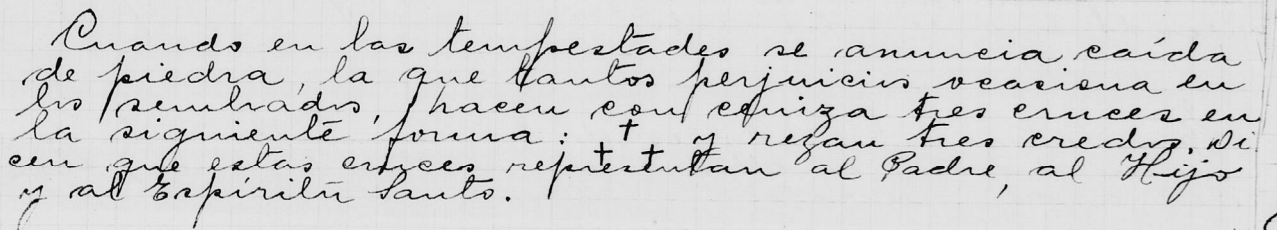 Cuando en las tempestades se anuncia caída
de piedra, la que tantos perjuicios ocasiona en
los sembrados, hacen con ceniza tres cruces en
la siguiente forma: † y rezan tres credos. Di
cen que estas cruces † † representan al Padre, al Hijo
y al Espíritu Santo.